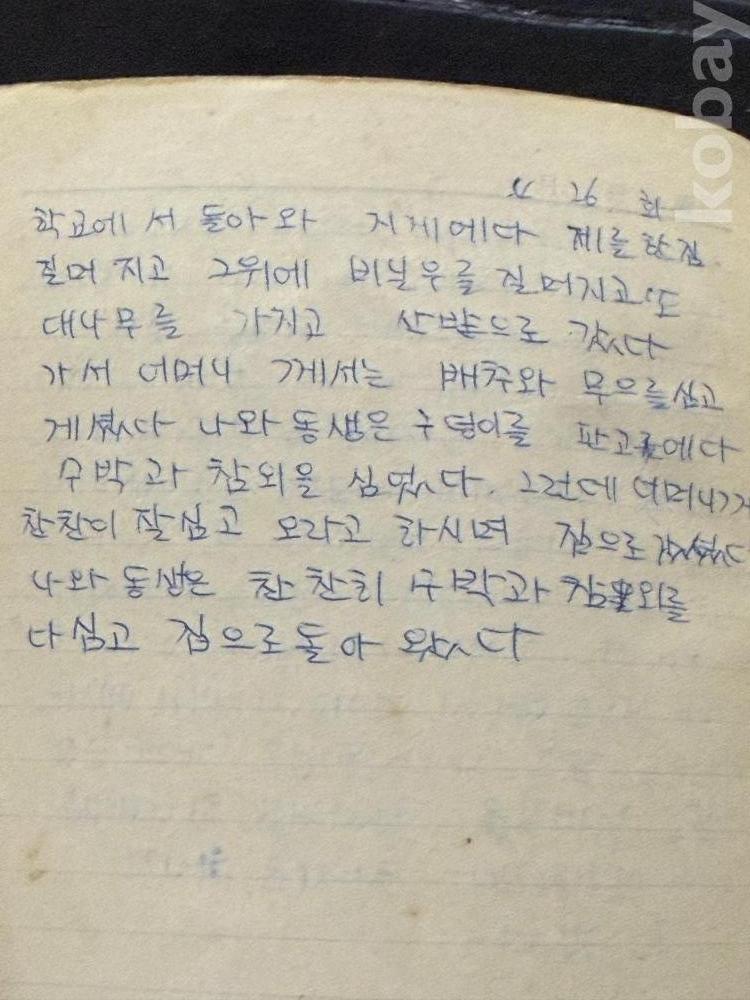 kobay
4 26 화
학교에서 돌아와 지게에다 제를 한짐
질머지고 그위에 비닐우를 질머지고 또
대나무를 가지고 산밭으로 갔다
가서 어머니 께서는 배추와 무으를 심고
게셨다 나와 동생은 구덩이를 판고 에다
수박과 참외을 심었다. 그런데 어머니가
찬찬이 잘심고 오라고 하시며 집으로
나와 동생은 찬찬히 수박과 참외를
다심고 집으로 돌아 왔다